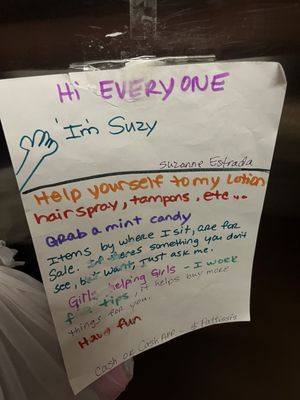 Hi EVERYONE
'I'm Suzy
Suzanne Estrada
Help yourself to my Lotion
hairspray, tampons, etc...
Grab a mint candy
Items by where I sit, are for
sale. If theres something you don't
see, but want, just ask me.
Girls helping Girls - I work
for tips, it helps buy more
things for you.
Have fun
Cash or Cash App -